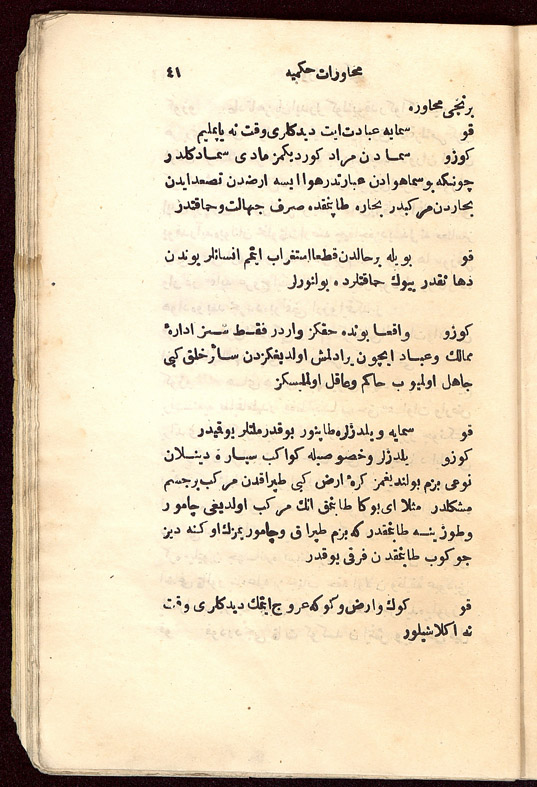 محاورات حكميه ٤١
برنجى محاوره
قو سمايه عبادت ايت ديدكلرى وقت نه ياپمليم
كوزو سمادن مراد كورديكمز مادى سمادكلدر
چونكه بوسماهوادن عبارتدر هوا ايسه ارضدن تصعدايدن
بخاردن مركبدر بخاره طاپمقده صرف جهالت وحماقتدر
قو بويله برحالدن قطعا استغراب ايتمم انسانلر بوندن
دها نقدر بيوك حماقتلرده بولنورلر
كوزو واقعا بونده حقكز واردر فقط سز اداره
ممالك وعباد ايچون يرادلمش اولديغكزدن سائر خلق كبى
جاهل اولميوب حاكم وعاقل اولمليسكز
قو سمايه و يلدزلره طاپنور بوقدر ملتلر يوقيدر
كوزو يلدزلر وخصوصيله كواكب سياره دينيلان
نوعى بزم بولنديغمز كرهٔ ارض كبى طپراقدن مركب برجسم
مشكلدر مثلا اى يوكا طاپمق انك مركب اولديغى چامور
وطوزينه طاپمقدر كه بزم طپراق وچامور يمزك اوكنه ديز
چوكوب طاپمقدن فرقى يوقدر
قو كوك وارض وكوكه عروج ايتمك ديدكلرى وقت
نه اكلاشيلور